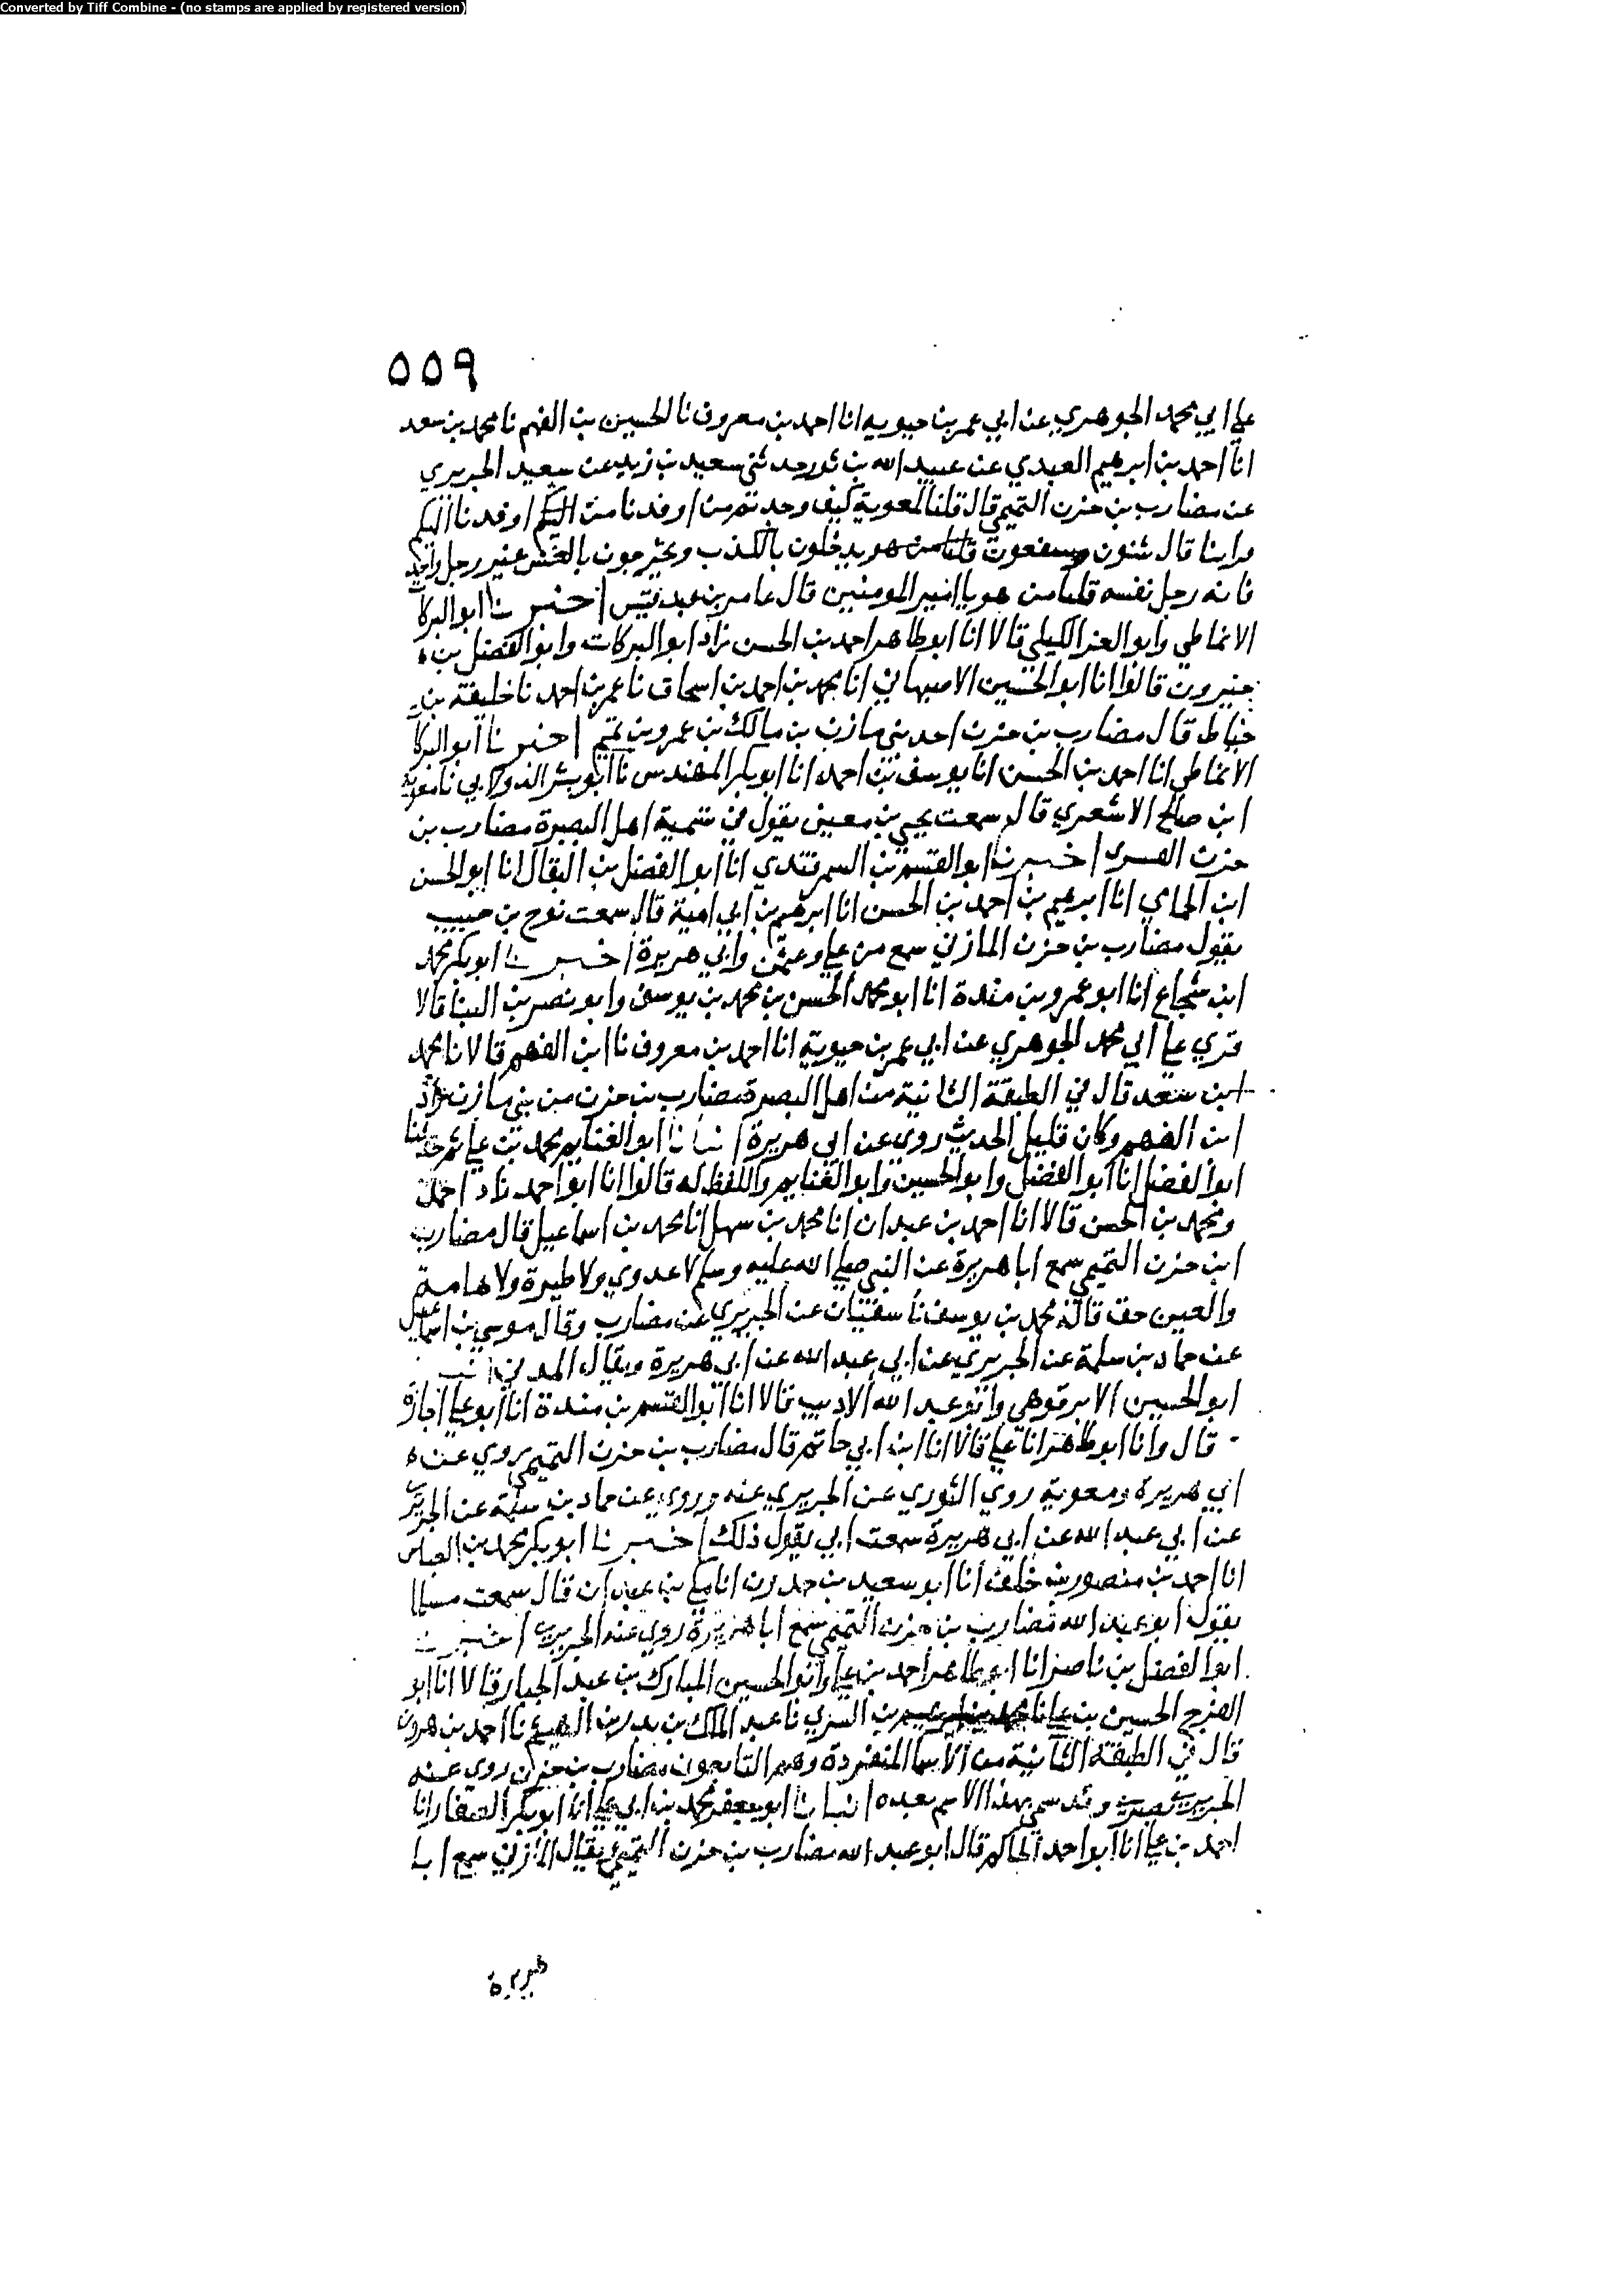 Converted by Tiff Combine - (no stamps are applied by registered version)
٥٥٩
على ابي محمد الجوهري عن ابي عمر بن حيويه انا احمد بن معروف نا الحسين بن الفهم نا محمد بن سعد
انا احمد بن ابرهيم العبدي عن عبيد الله بن ثور حدثني سعيد بن زيد عن سعيد الجريري
عن مضارب بن حزن التميمي قال قلنا لمعوية كيف وجدتم من اوفدنا من اليكم اوفدنا اليكم
من هو يدخلون بالكذب ويخرجون بالغش غير رجل واحد
فانه رجل نفسه قلنا من هو يا امير المومنين قال عامر بن عبد قيس اخبرنا ابو البركات
الانماطي وابو العز الكيلي قالا انا ابو طاهر احمد بن الحسن زاد ابو البركات وابو الفضل بن
خيرون قالوا انا ابو الحسين الاصبهاني انا محمد بن احمد بن اسحاق نا عمر بن احمد نا خليفة بن
خياط قال مضارب بن حزن احد بني مازن بن مالك بن عمرو بن تميم اخبرنا ابو البركات
الانماطي انا احمد بن الحسن انا يوسف بن احمد انا ابو بكر المهندس نا ابو بشر الدولابي نا معوية
ابن صالح الاشعري قال سمعت يحيى بن معين يقول في تسمية اهل البصرة مضارب بن
حزن اخبرنا ابو القسم بن السمرقندي انا ابو الفضل بن البقال انا ابو الحسن
ابن الحمامي انا ابرهيم بن احمد بن الحسن انا ابرهيم بن ابي امية قال سمعت نوح بن حبيب
يقول مضارب بن حزن المازني سمع من علي وعثمن وابي هريرة اخبرنا ابو بكر محمد
ابن شجاع انا ابو عمرو بن مندة انا ابو محمد الحسن بن محمد بن يوسف وابو نصر بن البنا قالا
قري على ابي محمد الجوهري عن ابي عمر بن حيوية انا احمد بن معروف نا ابن الفهم قالا نا محمد
ابن سعد قال في الطبقة الثانية من اهل البصرة مضارب بن حزن من بني مازن زاد
ابن الفهم وكان قليل الحديث روي عن ابي هريرة انبانا ابو الغنايم محمد بن علي ثم حدثنا
ابو الفضل انا ابو الفضل وابو الحسين وابو الغنايم واللفظ له قالوا انا ابو احمد زاد احمد
ومحمد بن الحسن قالا انا احمد بن عبدان انا محمد بن سهل انا محمد بن اسماعيل قال مضارب
ابن حزن التميمي سمع ابا هريرة عن النبي صلى الله عليه وسلم لا عدوي ولا طيرة ولا هامة
والعين حق قاله محمد بن يوسف نا سفيان عن الجريري عن مضارب وقال موسي بن اسماعيل
عن حماد بن سلمة عن الجريري عن ابي عبد الله عن ابي هريرة ويقال
ابو الحسين الابرقوهي وابو عبد الله الاديب قالا انا ابو القسم بن مندة انا ابو علي اجازة
قال وانا ابو طاهر انا علي قالا انا ابن ابي حاتم قال مضارب بن حزن التميمي روي عن
ابي هريرة ومعوية روي الثوري عن الجريري عنه وروي عن حماد بن سلمة عن الجريري
عن ابي عبد الله عن ابي هريرة سمعت ابي يقول ذلك اخبرنا ابو بكر محمد بن العباس
انا احمد بن منصور بن خلف انا ابو سعيد بن حمدون انا مكي بن عبدان قال سمعت مسلما
يقول ابو عبد الله مضارب بن حزن التميمي سمع ابا هريرة روي عنه الجريري اخبرنا
ابو الفضل بن ناصر انا ابو طاهر احمد بن علي وابو الحسين المبارك بن عبد الجبار قالا انا ابو
الفرج الحسين بن علي انا محمد بن ابرهيم بن السري نا عبد الملك بن بدر بن الهيثم نا احمد بن هرون
قال في الطبقة الثانية من الاسما المنفردة وهم التابعون مضارب بن حزن روي عنه
الجريري بصري وقد سمي بهذا الاسم بعده انبانا ابو جعفر محمد بن ابي علي انا ابو بكر الصفار انا
احمد بن علي انا ابو احمد الحاكم قال ابو عبد الله مضارب بن حزن التميمي ويقال المازني سمع ابا
هريرة